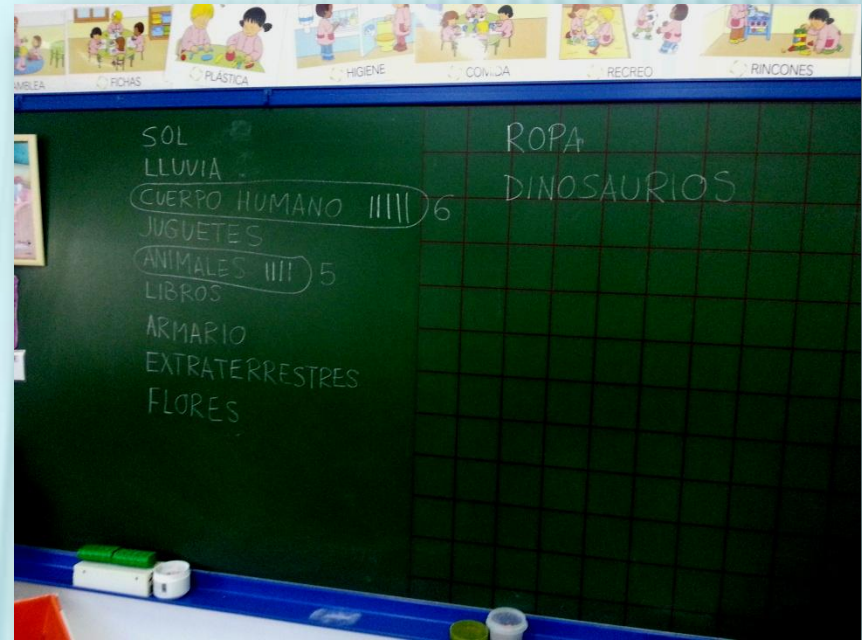 AMBLEA
FICHAS
PLÁSTICA
HIGIENE
COMIDA
RECREO
RINCONES
SOL
LLUVIA
CUERPO HUMANO IIIIII 6
JUGUETES
ANIMALES IIII 5
LIBROS
ARMARIO
EXTRATERRESTRES
FLORES
ROPA
DINOSAURIOS